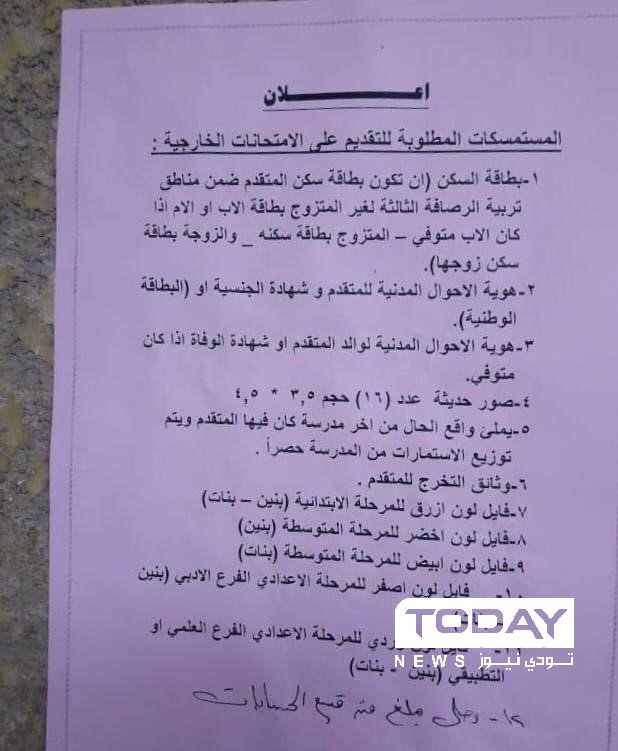 اعـــــــــلان
المستمسكات المطلوبة للتقديم على الامتحانات الخارجية :
١-بطاقة السكن (ان تكون بطاقة سكن المتقدم ضمن مناطق
تربية الرصافة الثالثة لغير المتزوج بطاقة الاب او الام اذا
كان الاب متوفي – المتزوج بطاقة سكنه _ والزوجة بطاقة
سكن زوجها).
٢-هوية الاحوال المدنية للمتقدم و شهادة الجنسية او (البطاقة
الوطنية).
٣-هوية الاحوال المدنية لوالد المتقدم او شهادة الوفاة اذا كان
متوفي.
٤-صور حديثة عدد (١٦) حجم ٣,٥ * ٤,٥
٥-يملئ واقع الحال من اخر مدرسة كان فيها المتقدم ويتم
توزيع الاستمارات من المدرسة حصراً .
٦-وثائق التخرج للمتقدم .
٧-فايل لون ازرق للمرحلة الابتدائية (بنين – بنات)
٨-فايل لون اخضر للمرحلة المتوسطة (بنين)
٩-فايل لون ابيض للمرحلة المتوسطة (بنات)
١٠- فايل لون اصفر للمرحلة الاعدادي الفرع الادبي (بنين
١١- لون للمرحلة الاعدادي الفرع العلمي او
التطبيقي (بنين - بنات)
١٢- وصل مبلغ من قسم الحسابات
TODAY
NEWS تودي نيوز